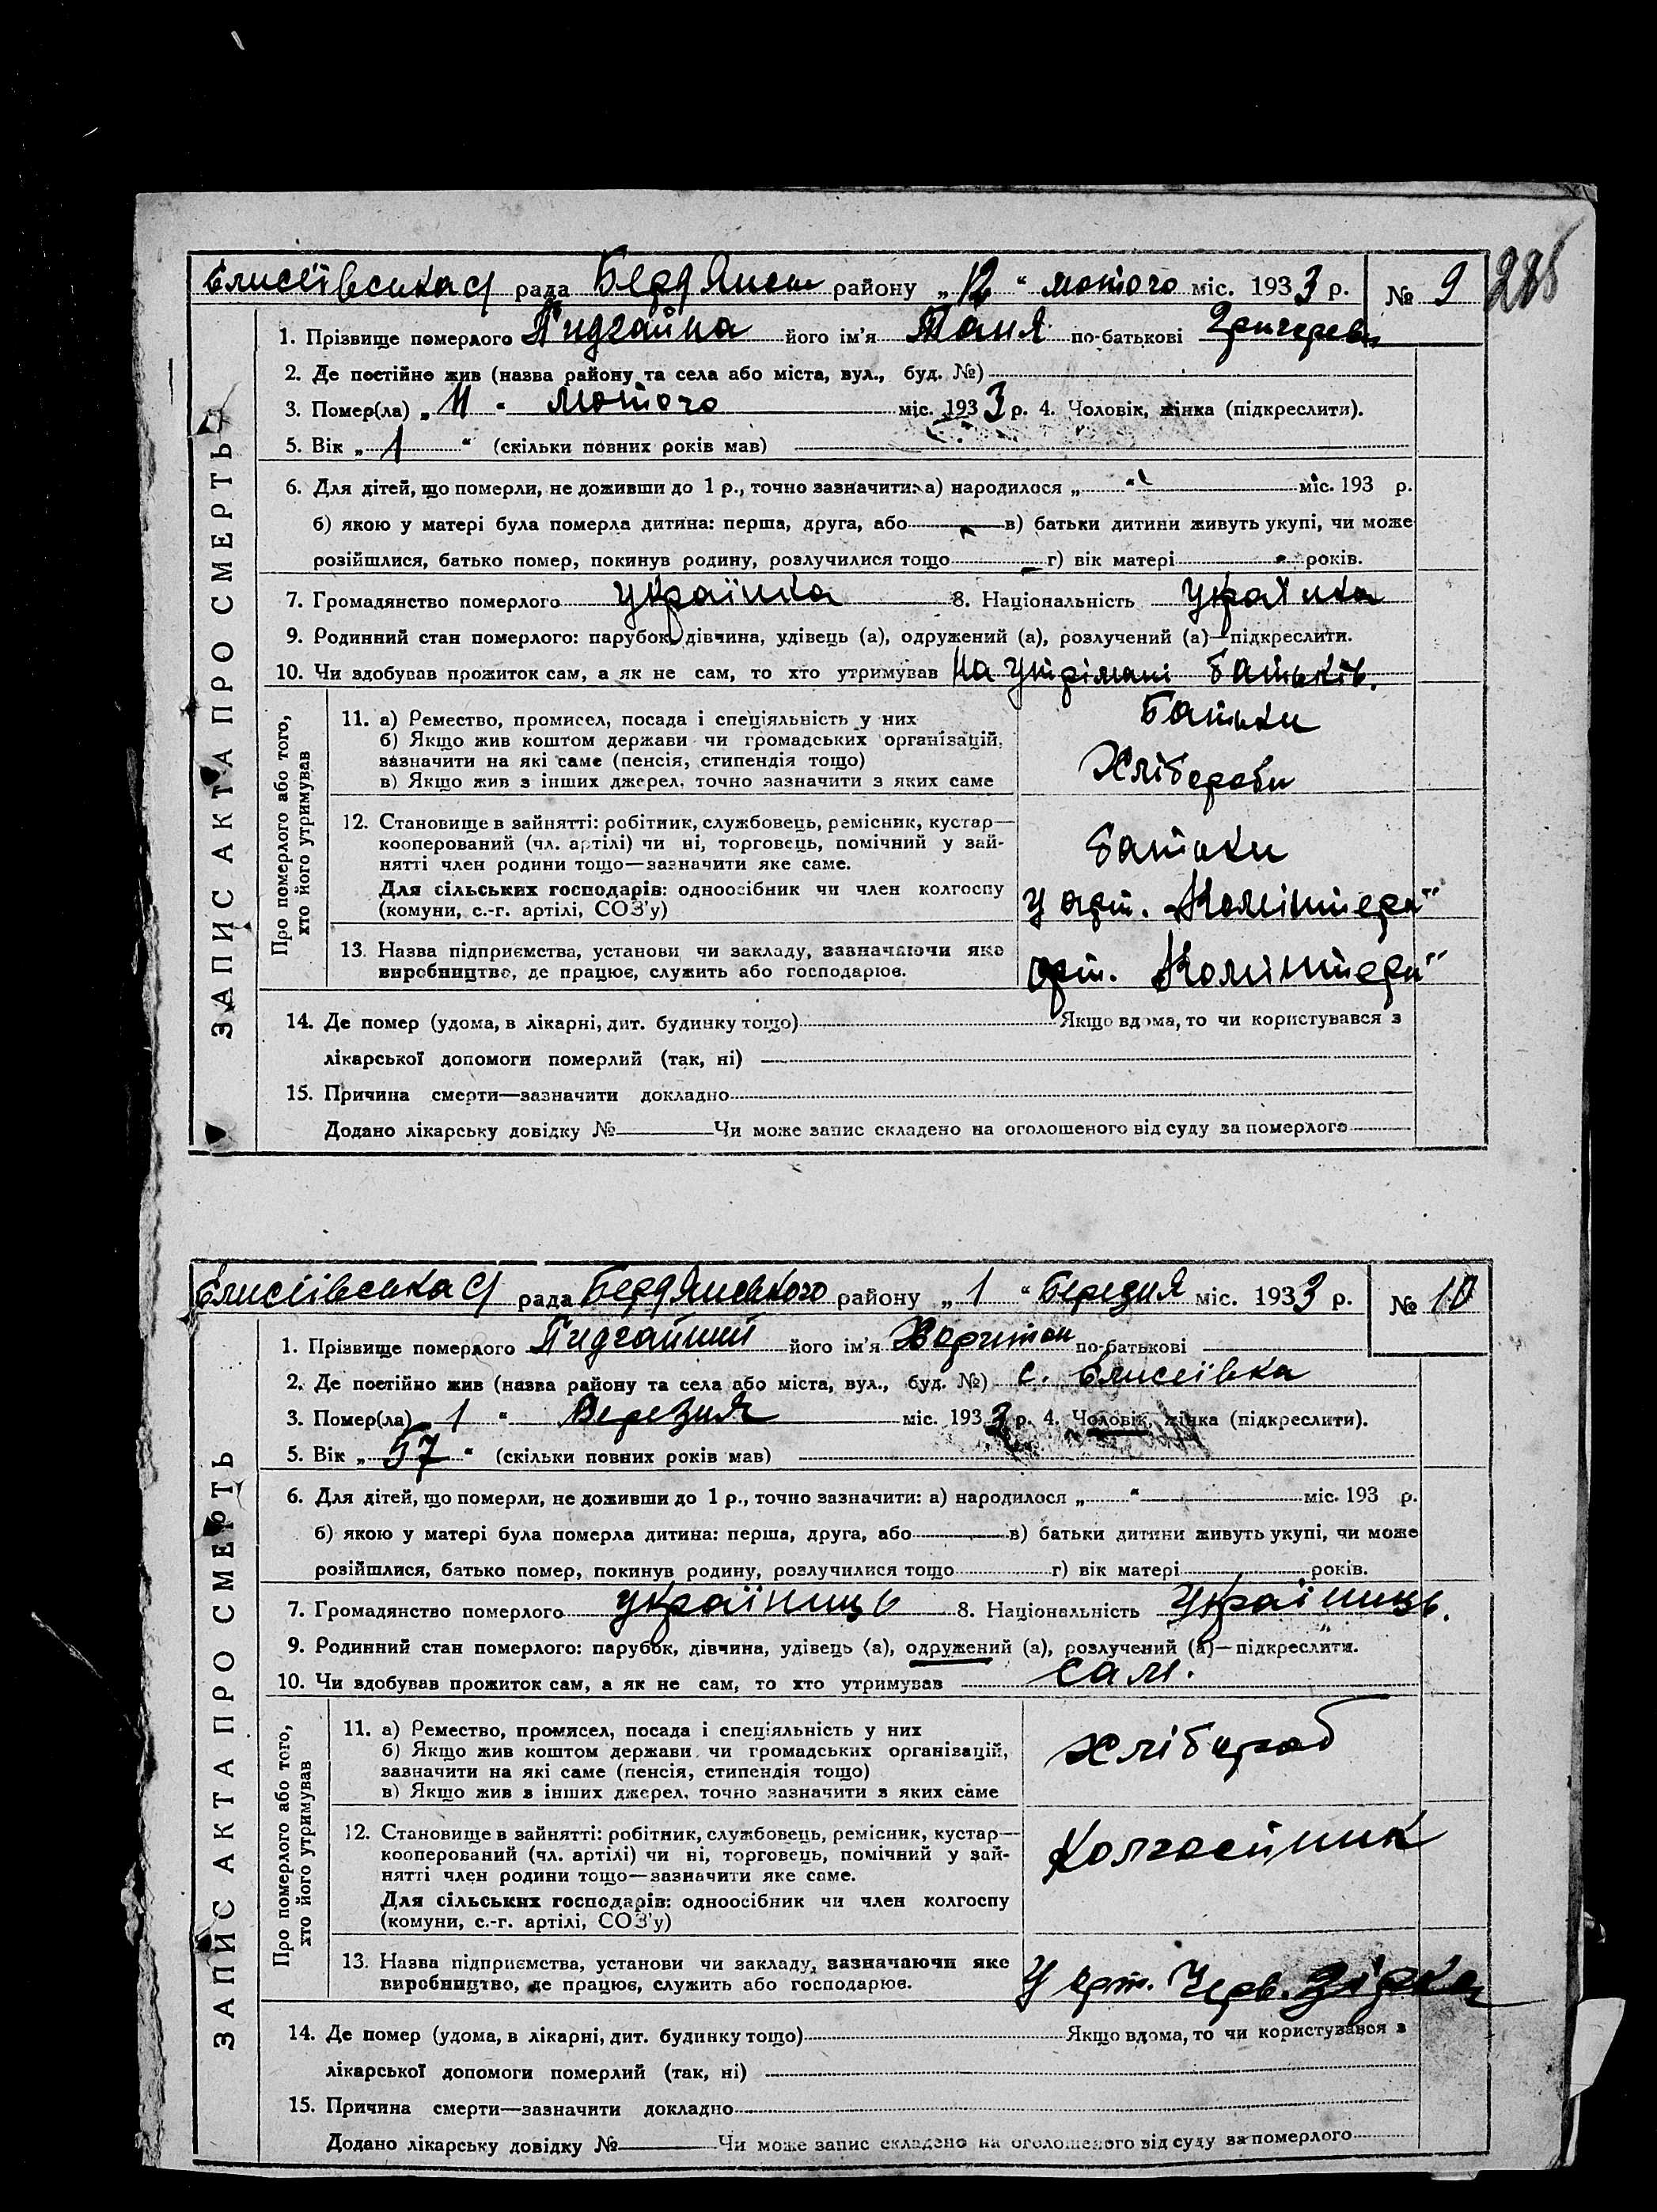 Єлисеївська рада Бердянськ району „12“ лютого міс. 1933 р. № 9 225
1. Прізвище померлого Пидгайна його ім’я Таня по-батькові
2. Де постійно жив (назва району та села або міста, вул., буд. №)
3. Помер(ла) „11“ лютого міс. 1933 р. 4. Чоловік, жінка (підкреслити).
5. Вік „1“ (скільки повних років мав)
6. Для дітей, що померли, не доживши до 1 р., точно зазначити: а) народилося „ “ міс. 193 р.
б) якою у матері була померла дитина: перша, друга, або в) батьки дитини живуть укупі, чи може
розійшлися, батько помер, покинув родину, розлучилися тощо г) вік матері років.
7. Громадянство померлого українка 8. Національність українка
9. Родинний стан померлого: парубок, дівчина, удівець (а), одружений (а), розлучений (а)—підкреслити.
10. Чи здобував прожиток сам, а як не сам, то хто утримував на утрімані батьків.
ЗАПИС АКТА ПРО СМЕРТЬ
Про померлого або того,
хто його утримував
11. а) Ремество, промисел, посада і спеціяльність у них
б) Якщо жив коштом держави чи громадських організацій,
зазначити на які саме (пенсія, стипендія тощо)
в) Якщо жив з інших джерел, точно зазначити з яких саме
Батьки
Хлібороби
12. Становище в зайнятті: робітник, службовець, ремісник, кустар—
кооперований (чл. артілі) чи ні, торговець, помічний у зай-
нятті член родини тощо—зазначити яке саме.
Для сільських господарів: одноосібник чи член колгоспу
(комуни, с.-г. артілі, СОЗ’у)
Батьки
у арт. „Комінтерн“
13. Назва підприємства, установи чи закладу, зазначаючи яке
виробництво, де працює, служить або господарює.
арт. „Комінтерн“
14. Де помер (удома, в лікарні, дит. будинку тощо) Якщо вдома, то чи користувався з
лікарської допомоги померлий (так, ні)
15. Причина смерти—зазначити докладно
Додано лікарську довідку № Чи може запис складено на оголошеного від суду за померлого
Єлисеївська рада Бердянського району „1“ Березня міс. 1933 р. № 10
1. Прізвище померлого Пидгайний його ім’я Харитон по-батькові
2. Де постійно жив (назва району та села або міста, вул., буд. №) с. Єлисеївка
3. Помер(ла) „1“ Березня міс. 1933 р. 4. Чоловік, жінка (підкреслити).
5. Вік „57“ (скільки повних років мав)
6. Для дітей, що померли, не доживши до 1 р., точно зазначити: а) народилося „ “ міс. 193 р.
б) якою у матері була померла дитина: перша, друга, або в) батьки дитини живуть укупі, чи може
розійшлися, батько помер, покинув родину, розлучилися тощо г) вік матері років.
7. Громадянство померлого україниць 8. Національність Українинь.
9. Родинний стан померлого: парубок, дівчина, удівець (а), одружений (а), розлучений (а)—підкреслити.
10. Чи здобував прожиток сам, а як не сам, то хто утримував сам.
ЗАПИС АКТА ПРО СМЕРТЬ
Про померлого або того,
хто його утримував
11. а) Ремество, промисел, посада і спеціяльність у них
б) Якщо жив коштом держави чи громадських організацій,
зазначити на які саме (пенсія, стипендія тощо)
в) Якщо жив з інших джерел, точно зазначити з яких саме
хлібороб
12. Становище в зайнятті: робітник, службовець, ремісник, кустар—
кооперований (чл. артілі) чи ні, торговець, помічний у зай-
нятті член родини тощо—зазначити яке саме.
Для сільських господарів: одноосібник чи член колгоспу
(комуни, с.-г. артілі, СОЗ’у)
Колгоспник
13. Назва підприємства, установи чи закладу, зазначаючи яке
виробництво, де працює, служить або господарює.
У арт. Черв. Зірка
14. Де помер (удома, в лікарні, дит. будинку тощо) Якщо вдома, то чи користувався з
лікарської допомоги померлий (так, ні)
15. Причина смерти—зазначити докладно
Додано лікарську довідку № Чи може запис складено на оголошеного від суду за померлого